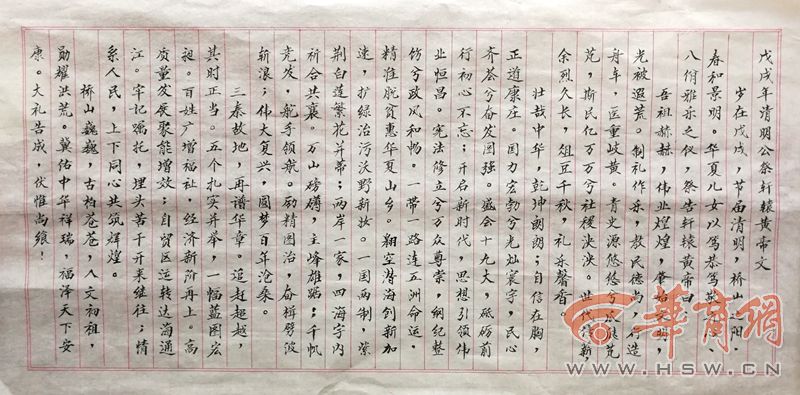 戊戌年清明公祭轩辕黄帝文
岁在戊戌，节届清明，桥山之阳，
春和景明。华夏儿女以笃恭笃敬之
八佾雅乐之仪，祭告轩辕黄帝曰
吾祖赫赫，伟业煌煌，肇始文明，
光被遐荒。制礼作乐，教民德尚，行造
舟车，医重岐黄。青史源悠悠兮瓜瓞茫
茫，斯民亿万万兮社稷泱泱。世代传薪
余烈久长，俎豆千秋，礼乐馨香
壮哉中华，乾坤朗朗；自信在胸，
正道康庄。国力宏勃兮光灿寰宇，民心
齐荟兮奋发图强。盛会十九大，砥砺前
行初心不忘；开启新时代，思想引领伟
业恒昌。宪法修立兮万众尊崇，纲纪整
饬兮政风和畅。一带一路连五洲命运，
精准脱贫惠华夏山乡。翔空潜海创新加
速，扩绿治污沃野新妆。一国两制，紫
荆白莲繁花并蒂；两岸一家，四海宇内
祈合共襄。万山磅礴，主峰雄踞；千帆
竞发，舵手领航。励精图治，奋楫劈波
斩浪；伟大复兴，圆梦百年沧桑。
三秦故地，再谱华章。追赶超越，
其时正当。五个扎实并举，一幅蓝图宏
昶。百姓广增福祉，经济新阶再上。高
质量发展聚能增效；自贸区运转达海通
江。牢记嘱托，埋头苦干开来继往；情
系人民，上下同心共筑辉煌。
桥山巍巍，古柏苍苍，人文初祖，
勋耀洪荒。冀佑中华祥瑞，福泽天下安
康。大礼告成，伏惟尚飨！
华商网
WWW.HSW.CN